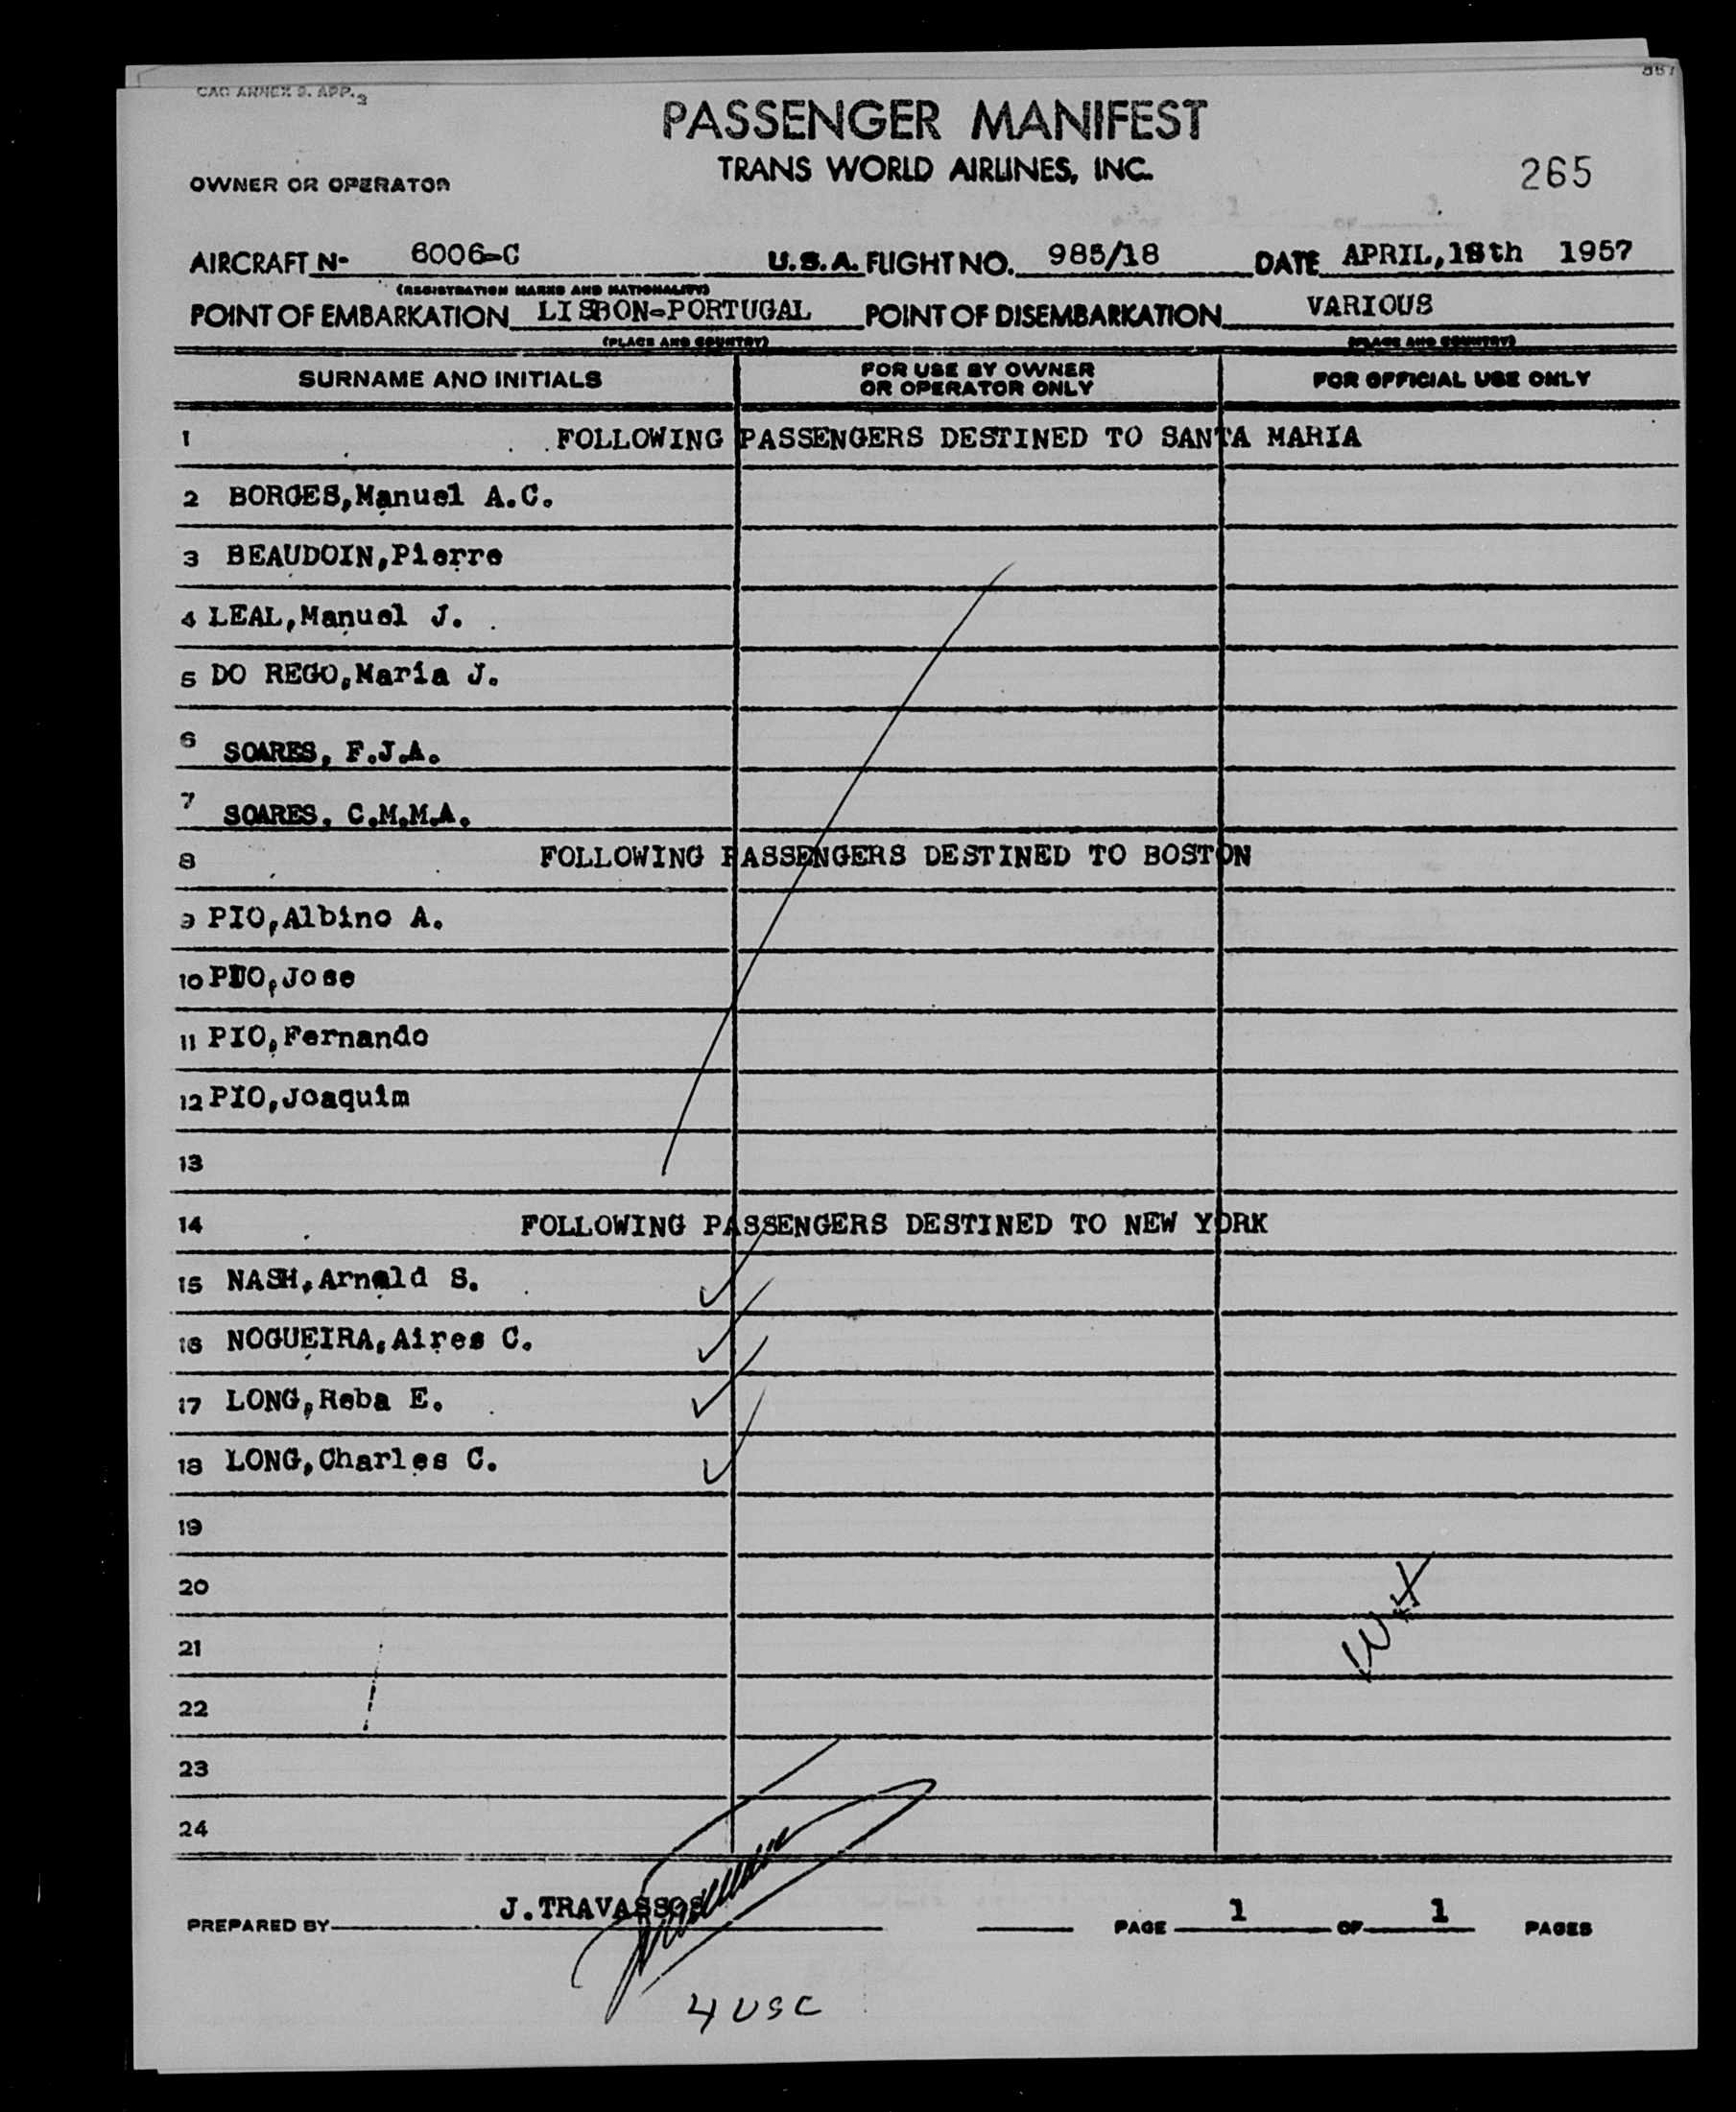 CAO ANNEX 9. APP. 3
PASSENGER MANIFEST
TRANS WORLD AIRLINES, INC.
OWNER OR OPERATOR
265
AIRCRAFT N- 6006-C U.S.A. FLIGHT NO. 985/18 DATE APRIL,18th 1957
(REGISTRATION MARKS AND NATIONALITY)
POINT OF EMBARKATION LISBON-PORTUGAL POINT OF DISEMBARKATION VARIOUS
(PLACE AND COUNTRY) (PLACE AND COUNTRY)
SURNAME AND INITIALS FOR USE BY OWNER OR OPERATOR ONLY FOR OFFICIAL USE ONLY
1 FOLLOWING PASSENGERS DESTINED TO SANTA MARIA
2 BORGES,Manuel A.C.
3 BEAUDOIN,Pierre
4 LEAL,Manuel J.
5 DO REGO,Maria J.
6 SOARES, F.J.A.
7 SOARES, C.M.M.A.
8 FOLLOWING PASSENGERS DESTINED TO BOSTON
9 PIO,Albino A.
10 PIO,Jose
11 PIO,Fernando
12 PIO,Joaquim
13
14 FOLLOWING PASSENGERS DESTINED TO NEW YORK
15 NASH,Arnold S.
16 NOGUEIRA,Aires C.
17 LONG,Reba E.
18 LONG,Charles C.
19
20
21
22
23
24
PREPARED BY J.TRAVASSOS PAGE 1 OF 1 PAGES
4 USC